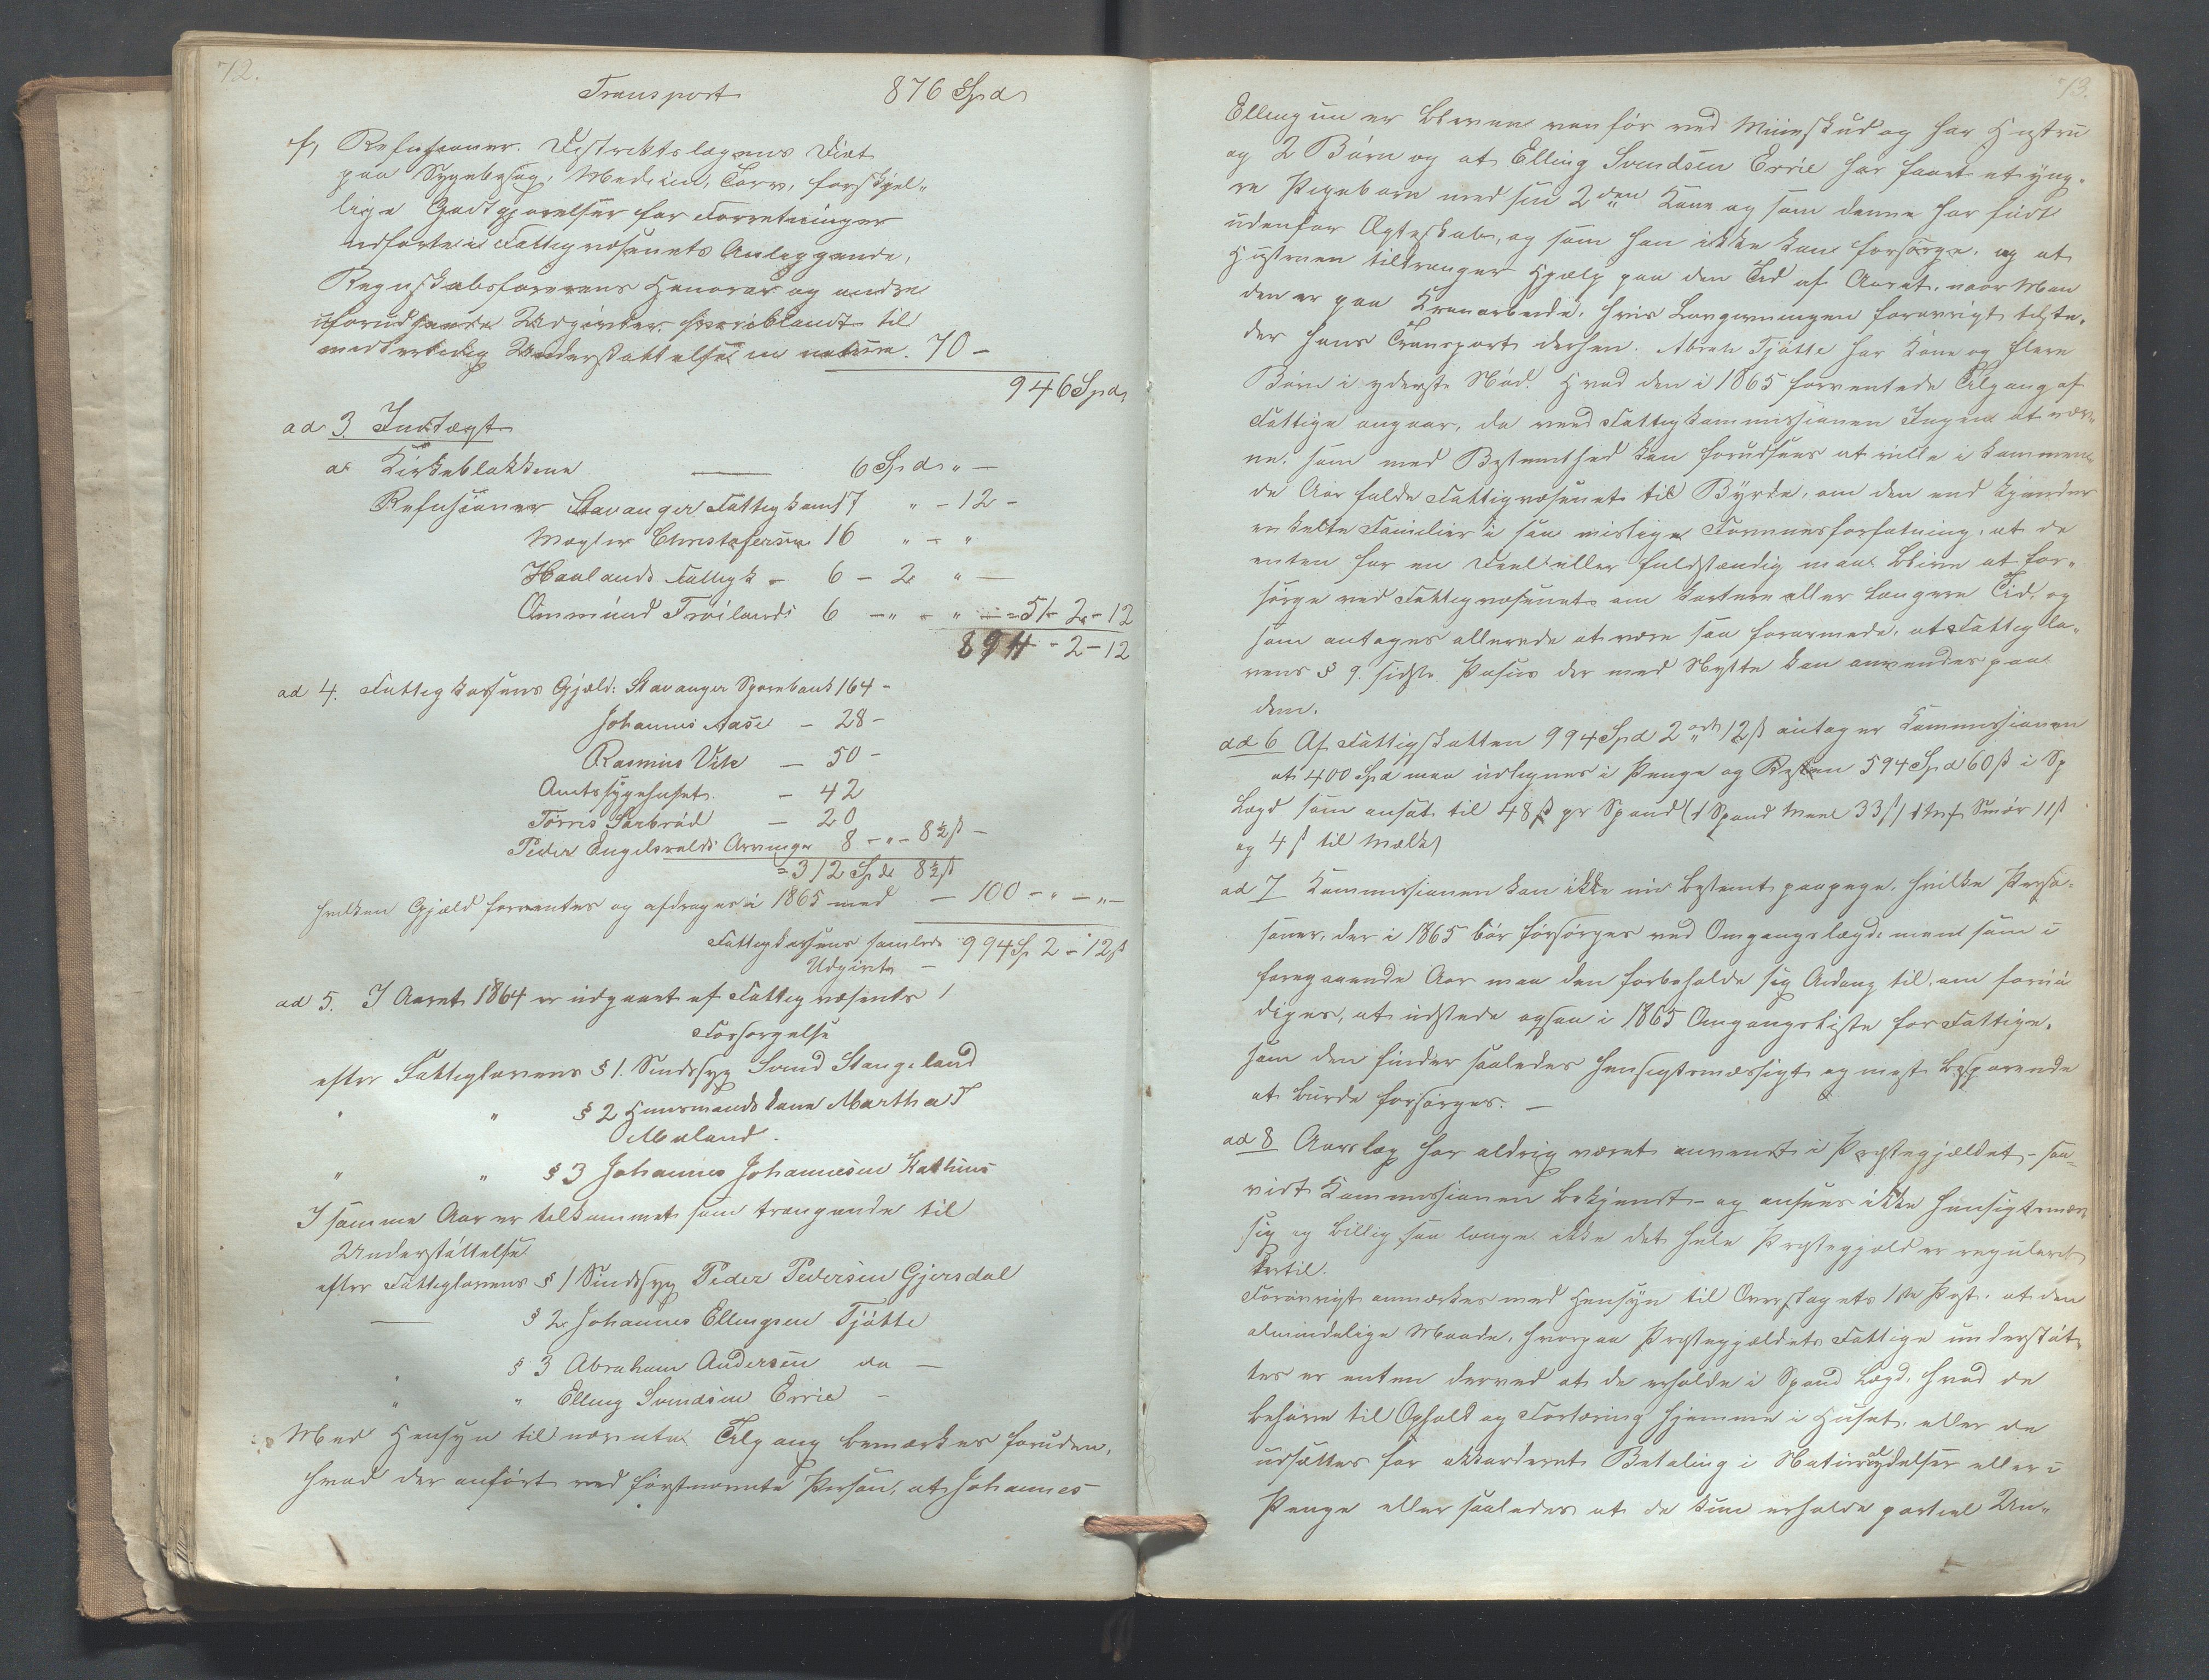 72.
Transport 876 Spd
f, Refusioner. Distriktslægens Diæt
paa Sygebesøg, Medicin, Tørv, forskjel„
lige Godtgjørelser for Forretninger
udførte i Fattigvæsenets Anliggende,
Regnskabsførerens Honorar og andre
uforudseede Udgivter hvoriblandt til
midlertidig Understøttelse in natura. 70 –
946 Spd,
ad 3. Indtægt
a Kirkeblokkene — 6 Spd „ –
Refusioner Stavanger Fattigkom 17 „ – 12 –
Mægler Christofersen 16 „ – „
Haalands Fattigk – 6 – 2 „ –
Ommund Frøilands 6 – „ – „ – = 51 – 2 – 12
894 – 2 – 12
ad 4. Fattigkassens Gjæld: Stavanger Sparebank 164 –
Johannes Aase – 28 –
Rasmus Vik – 50 –
Amtssygehuset – 42
Tørris Sørbrød – 20
Peder Engelsvolds Arvinger 8 – „ – 8½ ß –
= 312 Spd 8½ ß
hvilken Gjæld forrentes og afdrages i 1865 med – 100 – „ – „ –
Fattigkassens samlede 994 Sp 2 – 12 ß
Udgivt –
ad 5. I Aaret 1864 er udgaaet af Fattigvæsenets
Forsørgelse
efter Fattiglovens § 1. Sindssyg Svend Stangeland
„ „ § 2 Huusmands Kone Martha T
Meland.
„ „ § 3 Johannes Johannesen Kathuus
I samme Aar er tilkommet som trængende til
Understøttelse
efter Fattiglovens § 1 Sindssyg Peder Pedersen Gjersdal
— § 2 Johannes Ellingsen Tjøtte
„ § 3 Abraham Andersen do –
„ „ Elling Svendsen Errie –
Med Hensyn til nævnte Tilgang bemærkes foruden,
hvad der anført ved førstnævnte Person, at Johannes
73.
Ellingsen er bleven vanfør ved Mineskud og har Hustru
og 2 Børn og at Elling Svendsen Errie har faaet et yng„
re Pigebarn med sin 2den Kone og som denne har født
udenfor Ægteskab, og som han ikke kan forsørge, og at
Hustruen tiltrænger Hjælp paa den Tid af Aaret, naar Man
den er paa Kronarbeide, hvis Lovgivningen forøvrigt tilste„
der hans Transport derhen. Abrah Tjøtte har Kone og flere
Børn i yderste Nød. Hvad den i 1865 forventede Tilgang af
Fattige angaar, da veed Fattigkommissionen Ingen at næv„
ne, som med Bestemthed kan forudsees at ville i kommen„
de Aar falde Fattigvæsenet til Byrde, om den end kjender
enkelte Familier i saa mislige Formuesforfatning, at de
enten for en Deel eller fuldstændig maa blive at for„
sørge ved Fattigvæsenet om kortere eller længere Tid, og
som antages allerede at være saa forarmede, at Fattiglo„
vens § 9. sidste Passus der med Nytte kan anvendes paa
dem.
ad 6 Af Fattigskatten 994 Spd 2 ort 12 ß antager Kommissionen
at 400 Spd maa udlignes i Penge og Resten 594 Spd 60 ß i Sp
Lægd som ansat til 48 ß pr Spand (1 Spand Meel 33 ß, 1 Mk Smør 11 ß
og 4 ß til Melk)
ad 7 Kommissionen kan ikke nu bestemt paapege, hvilke Perso„
soner, der i 1865 bør forsørges ved Omgangslægd, men som i
foregaaende Aar maa den forbeholde sig Adang til, om fornø
diges, at udstede ogsaa i 1865 Omgangsliste for Fattige,
som den finder saaledes hensigtsmæssigt og mest besparende
at burde forsørges. –
ad 8 Aarslæg har aldrig været anvendt i Præstegjældet – saa„
vidt Kommissionen bekjendt – og ansees ikke hensigtsmæs
sig og billig saa længe ikke det hele Præstegjæld er reguleret
dertil.
Forøvrigt anmærkes med Hensyn til Overslagets 1ste Post, at den
almindelige Maade, hvorpaa Præstegjældets Fattige understøt„
tes er enten derved at de erholde i Spand Lægd, hvad de
behøve til Ophold og Fortæring hjemme i Huset, eller de
udsættes for akkorderet Betaling i Naturalydelser eller i
Penge eller saaledes at de kun erholde partiel Un„